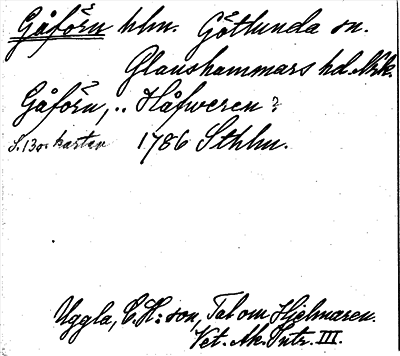 Gåförn hlm. Götlunda sn.
Glanshammars hd. Nrk.
Gåförn, .. Håfweren?
S. 13 o. kartan 1786 Sthlm.
Uggla, C. H:son, Tal om Hjelmaren.
Vet. Ak. Intr. III.